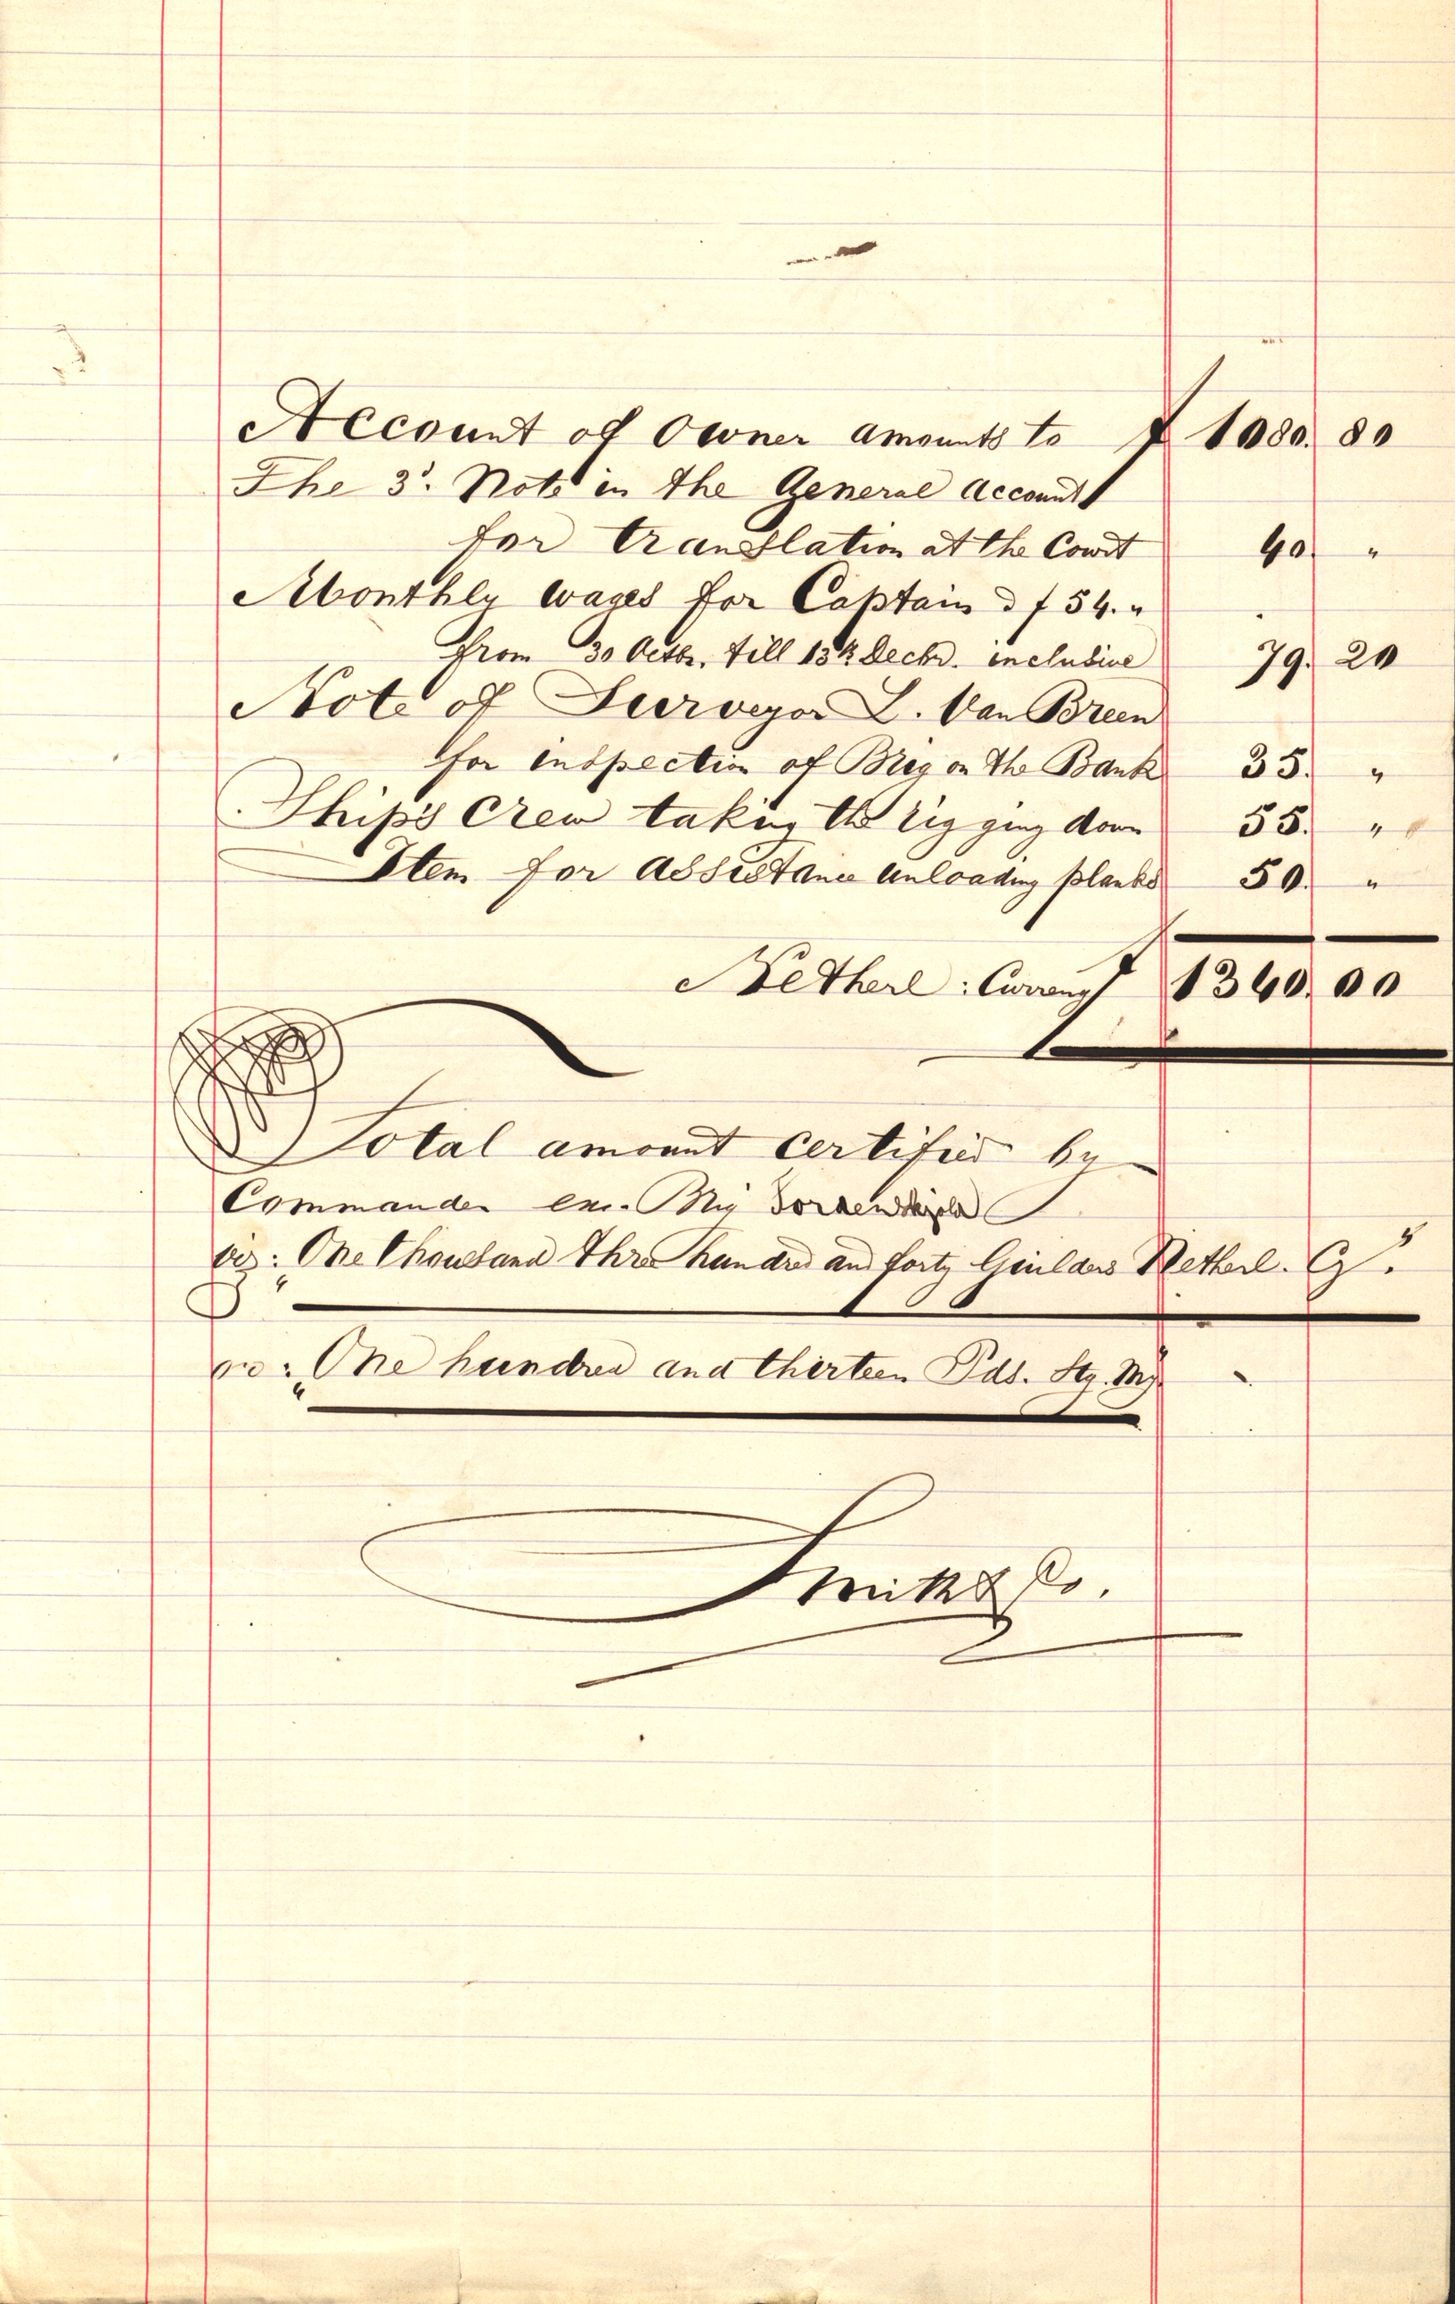 Account of Owner amounts to f 1080. 80
The 3d. Note in the General Account
for translation at the Court 40 "
Monthly wages for Captain à f 54. "
from 30 Octbr. till 13th Decbr. inclusive 79. 20
Note of Surveyor L. Van Breen
for inspection of Brig on the Bank 35. "
Ship's Crew taking the rigging down 55. "
Item for assistance unloading planks 50. "
Netherl: Currency f 1340. 00
Total amount certified by
Commander
viz: One thousand Three hundred and forty Guilders Netherl. Cy.
or: One hundred and thirteen Pds. Stg.
Smith & Co.